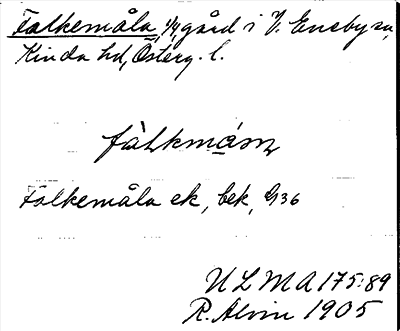 Falkemåla, 1/4 gård i V. Eneby sn,
Kinda hd, Österg. l.
Falkemåla ek, bek, G 36
ULMA 175:89
R. Alvin 1905